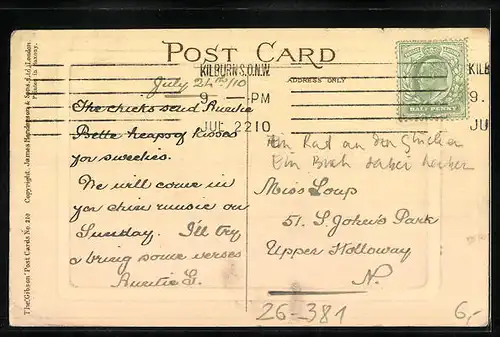 POST CARD
KILBURN S.O.N.W.
9. PM
JUL 22 10
KILB
9.
JU
HALF PENNY
ADDRESS ONLY
July 24th/10
The chicks send Auntie
Bette heaps of kisses
for sweeties.
We will come in
for music on
Sunday. I'll try
& bring some verses
Auntie E.
Ein Rad an den
Ein Buch dabei
Miss Loup
51. St John's Park
Upper Holloway
N.
26-381
6,-
The "Gibson" Post Cards No. 210 Copyright. James Henderson & Sons, Ltd., London.